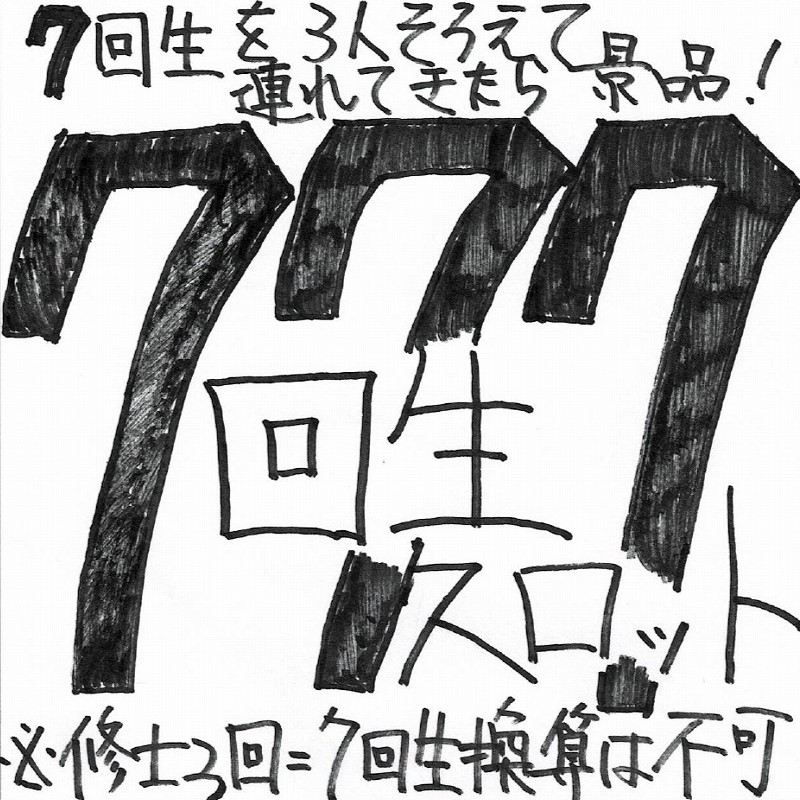 7回生を3人そろえて
連れてきたら景品!
777
回生
スロット
※修士3回=7回生換算は不可